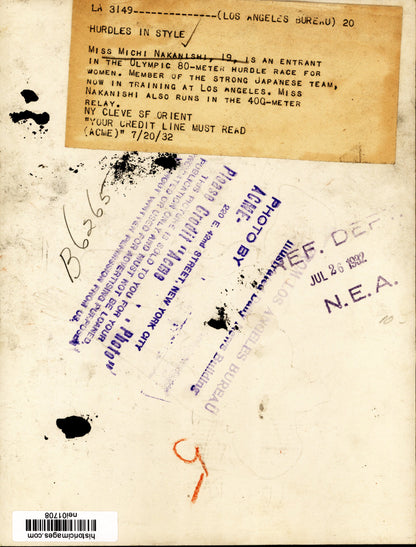 LA 3149---------------(LOS ANGELES BUREAU) 20
HURDLES IN STYLE
MISS MICHI NAKANISHI, 19, IS AN ENTRANT
IN THE OLYMPIC 80-METER HURDLE RACE FOR
WOMEN. MEMBER OF THE STRONG JAPANESE TEAM,
NOW IN TRAINING AT LOS ANGELES. MISS
NAKANISHI ALSO RUNS IN THE 400-METER
RELAY.
NY CLEVE SF ORIENT
"YOUR CREDIT LINE MUST READ
(ACME)" 7/20/32
B6265
THIS PICTURE IS SOLD TO YOU FOR YOUR
PUBLICATION ONLY AND MUST NOT BE LOANED
OR USED FOR ADVERTISING PURPOSES
WITHOUT WRITTEN PERMISSION FROM US.
Please Credit "Acme Photo"
PHOTO BY
ACME
220 E. 42nd STREET, NEW YORK CITY
Illustrated Daily News Building
LOS ANGELES BUREAU
REF. DEPT
JUL 26 1932
N.E.A.
5
10-
historicimages.com
nei01708